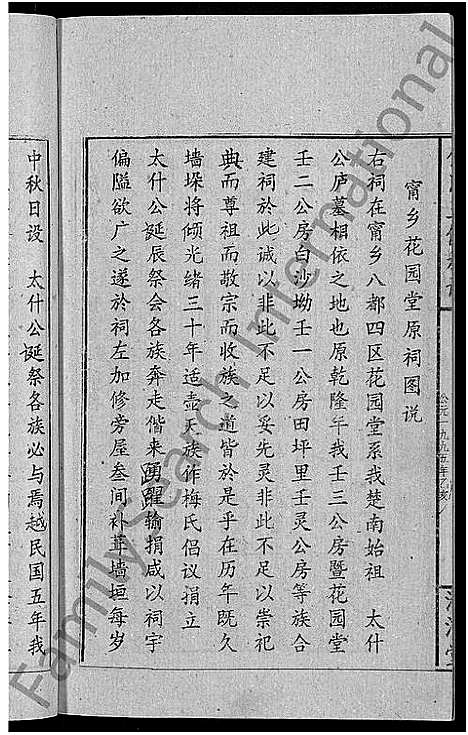 甯乡花园堂原祠图说
右祠在甯乡八都四区花园堂系我楚南始祖　太什
公庐墓相依之地也原乾隆年我壬三公房暨花园堂
壬二公房白沙坳壬一公房田坪里壬灵公房等族合
建祠於此诚以非此不足以妥先灵非此不足以崇祀
典而尊祖而敬宗而收族之道皆於是乎在历年既久
墙垛将倾光绪三十年适壶天族作梅氏倡议捐立
太什公诞辰祭会各族奔走偕来踴躍输捐咸以祠宇
偏隘欲广之遂於祠左加修旁屋叁间补葺墙垣每岁
中秋日设　太什公诞祭各族必与焉越民国五年我
公元一九九五年乙亥
FamilySearch International